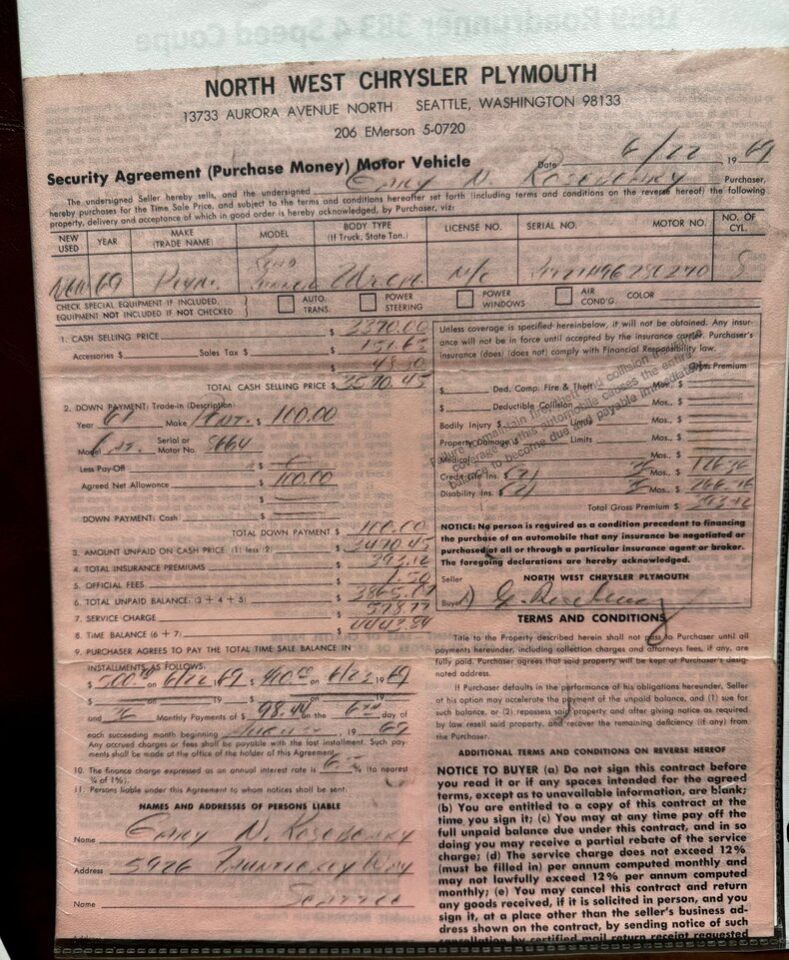 1969 Roadrunner 383 4 Speed Coupe
NORTH WEST CHRYSLER PLYMOUTH
13733 AURORA AVENUE NORTH SEATTLE, WASHINGTON 98133
206 EMerson 5-0720
Security Agreement (Purchase Money) Motor Vehicle Date 6/22 1969
The undersigned Seller hereby sells, and the undersigned Gary N. Purchaser,
hereby purchases for the Time Sale Price, and subject to the terms and conditions hereafter set forth (including terms and conditions on the reverse hereof) the following
property, delivery and acceptance of which in good order is hereby acknowledged, by Purchaser, viz:
NEW USED YEAR MAKE (TRADE NAME) MODEL BODY TYPE (If Truck, State Ton.) LICENSE NO. SERIAL NO. MOTOR NO. NO. OF CYL.
New 69 Plym. Road Runner 8
CHECK SPECIAL EQUIPMENT IF INCLUDED, EQUIPMENT NOT INCLUDED IF NOT CHECKED AUTO. TRANS. POWER STEERING POWER WINDOWS AIR COND'G. COLOR
1. CASH SELLING PRICE $ 3390.00
Accessories $ Sales Tax $ $
$
TOTAL CASH SELLING PRICE $ 3590.45
2. DOWN PAYMENT: Trade-in (Description)
Year 61 Make $ 100.00
Model Serial or Motor No.
Less Pay-Off $
Agreed Net Allowance $ 100.00
$
DOWN PAYMENT: Cash $
TOTAL DOWN PAYMENT $ 100.00
3. AMOUNT UNPAID ON CASH PRICE (1 less 2) $ 3490.45
4. TOTAL INSURANCE PREMIUMS $ 393.12
5. OFFICIAL FEES $ 1.50
6. TOTAL UNPAID BALANCE (3 + 4 + 5) $ 3885.07
7. SERVICE CHARGE $ 558.77
8. TIME BALANCE (6 + 7) $ 4443.84
9. PURCHASER AGREES TO PAY THE TOTAL TIME SALE BALANCE IN
INSTALLMENTS AS FOLLOWS:
$ 500.00 on 6/22 1969 $ 400.00 on 6/23 1969
$ on 19 $ on 19
and 36 Monthly Payments of $ 98.44 on the day of
each succeeding month beginning August 1969
Any accrued charges or fees shall be payable with the last installment. Such payments shall be made at the office of the holder of this Agreement.
10. The finance charge expressed as an annual interest rate is % (to nearest ¼ of 1%).
11. Persons liable under this Agreement to whom notices shall be sent.
NAMES AND ADDRESSES OF PERSONS LIABLE
Name Gary N.
Address 5926 Fauntleroy Way
Name Seattle
Unless coverage is specified hereinbelow, it will not be obtained. Any insur-
ance will not be in force until accepted by the insurance carrier. Purchaser's
insurance (does) (does not) comply with Financial Responsibility law.
Gross Premium
$ Ded. Comp. Fire & Theft Mos., $
$ Deductible Collision Mos., $
Bodily Injury $ Limits Mos., $
Property Damage $ Limits Mos., $
Medical Mos., $
Credit Life Ins. Mos., $ 126.36
Disability Ins. Mos., $ 266.76
Total Gross Premium $ 393.12
NOTICE: No person is required as a condition precedent to financing
the purchase of an automobile that any insurance be negotiated or
purchased at all or through a particular insurance agent or broker.
The foregoing declarations are hereby acknowledged.
Seller NORTH WEST CHRYSLER PLYMOUTH
Buyer
TERMS AND CONDITIONS
Title to the Property described herein shall not pass to Purchaser until all
payments hereunder, including collection charges and attorneys fees, if any, are
fully paid. Purchaser agrees that said property will be kept at Purchaser's desig-
nated address.
If Purchaser defaults in the performance of his obligations hereunder, Seller
at his option may accelerate the payment of the unpaid balance, and (1) sue for
such balance, or (2) repossess said property and after giving notice as required
by law resell said property, and recover the remaining deficiency (if any) from
the Purchaser.
ADDITIONAL TERMS AND CONDITIONS ON REVERSE HEREOF
NOTICE TO BUYER (a) Do not sign this contract before
you read it or if any spaces intended for the agreed
terms, except as to unavailable information, are blank;
(b) You are entitled to a copy of this contract at the
time you sign it; (c) You may at any time pay off the
full unpaid balance due under this contract, and in so
doing you may receive a partial rebate of the service
charge; (d) The service charge does not exceed 12%
(must be filled in) per annum computed monthly and
may not lawfully exceed 12% per annum computed
monthly; (e) You may cancel this contract and return
any goods received, if it is solicited in person, and you
sign it, at a place other than the seller's business ad-
dress shown on the contract, by sending notice of such
cancellation by certified mail return receipt requested